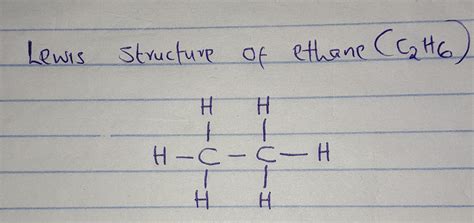 Lewis structure of ethane (C2H6)
H H
H - C - C - H
H H